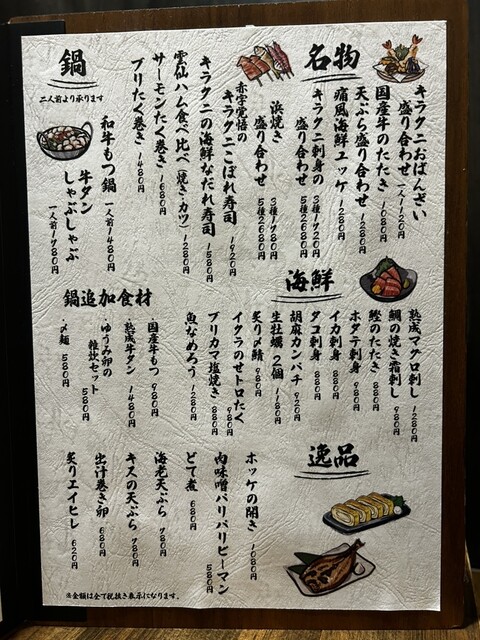 名物
キラクニおばんざい
盛り合わせ 一人1120円
国産牛のたたき 1080円
天ぷら盛り合わせ 1280円
痛風海鮮ユッケ 1280円
キラクニ刺身の 3種1720円
盛り合わせ 5種2680円
浜焼き 3種1780円
盛り合わせ 5種2680円
赤字覚悟の
キラクニこぼれ寿司 1920円
キラクニの海鮮なだれ寿司 1580円
雲仙ハム食べ比べ(焼き・カツ) 1280円
サーモンたく巻き 1680円
ブリたく巻き 1480円
鍋
二人前より承ります
和牛もつ鍋 一人前1480円
牛タン
しゃぶしゃぶ 一人前1780円
海鮮
熟成マグロ刺し 1280円
鯛の焼き霜刺し 980円
鰹のたたき 880円
ホタテ刺身 980円
イカ刺身 880円
タコ刺身 880円
胡麻カンパチ 920円
生牡蠣 2個 1180円
炙り〆鯖 980円
イクラのせトロたく 980円
ブリカマ塩焼き 880円
魚なめろう 1280円
鍋追加食材
・国産牛もつ 980円
・熟成牛タン 1480円
・ゆうみ卵の
雑炊セット 580円
・〆麺 580円
逸品
ホッケの開き 1080円
肉味噌パリパリピーマン 580円
どて煮 680円
海老天ぷら 780円
キスの天ぷら 780円
出汁巻き卵 680円
炙りエイヒレ 620円
※金額は全て税抜き表示になります。